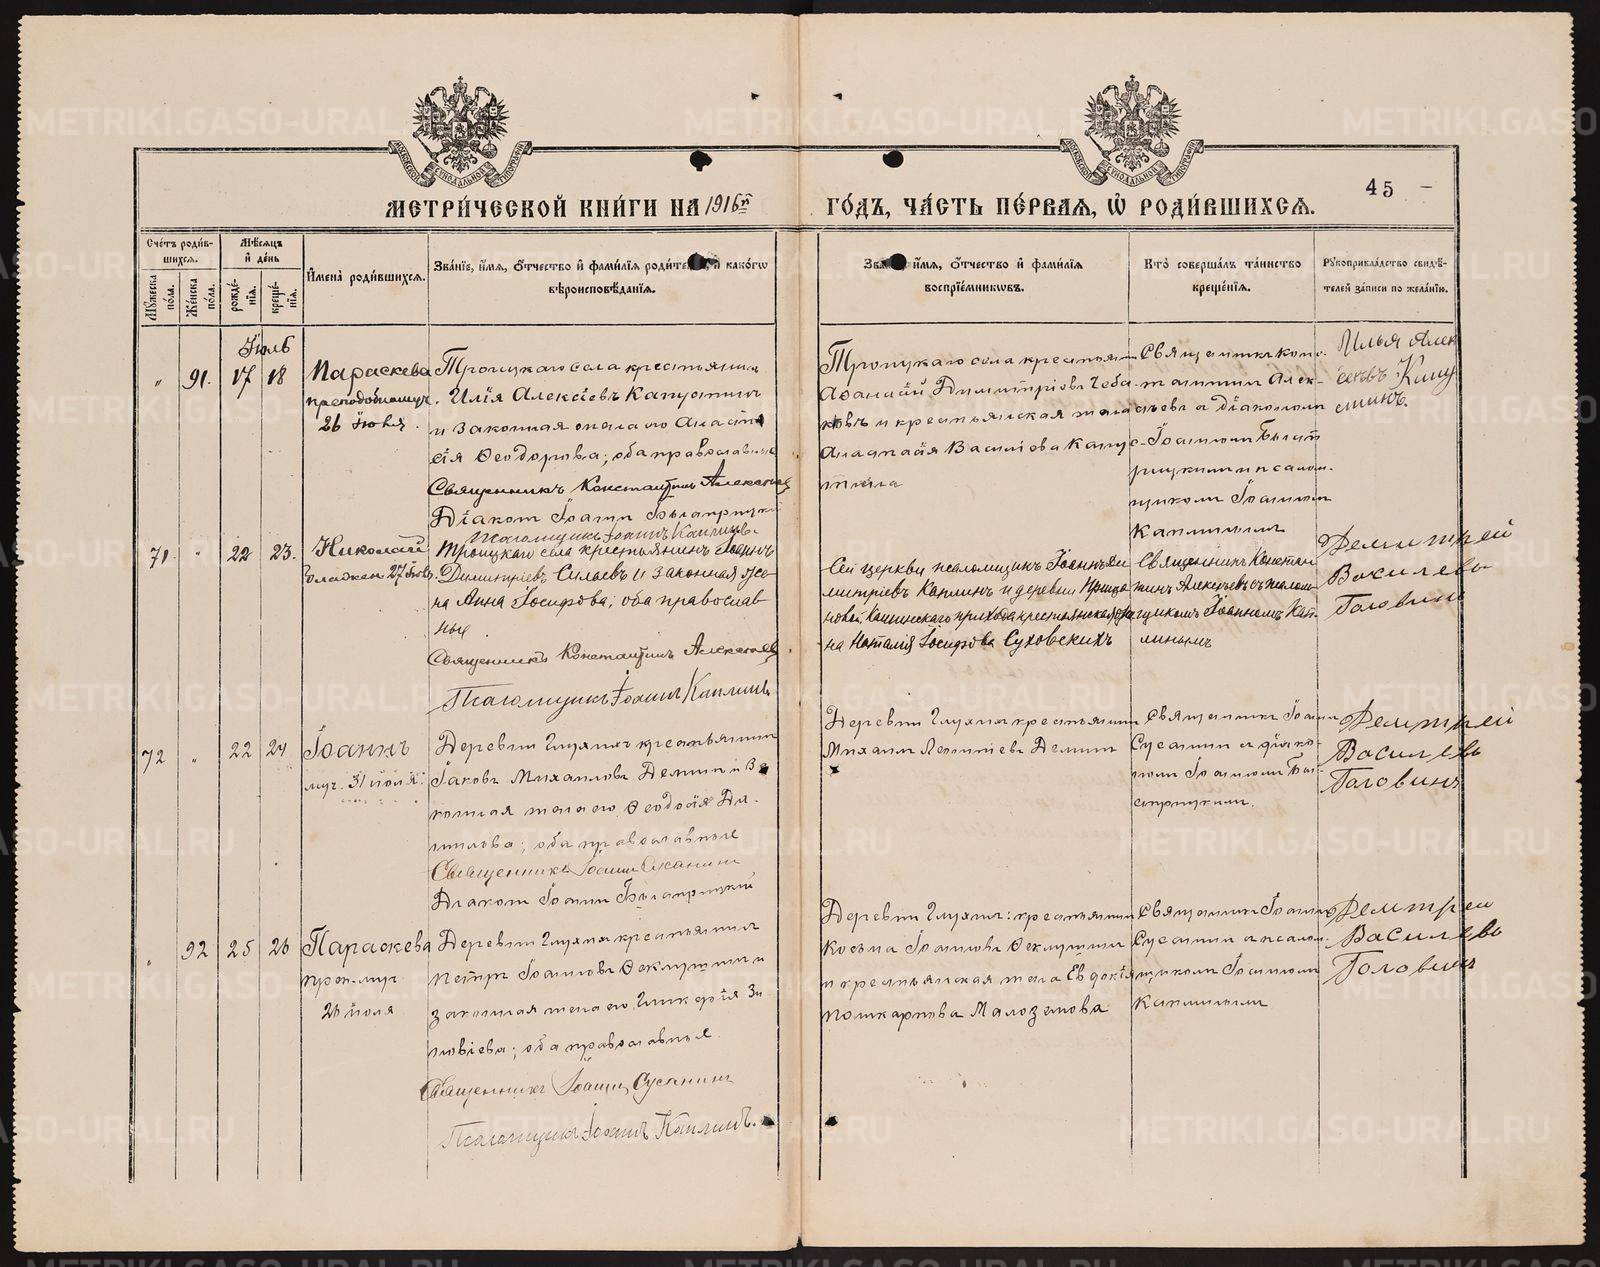 МЕТРИ́ЧЕСКОЙ КНИ́ГИ НА 1916й
ГО́ДЪ, ЧА́СТЬ ПЕ́РВАЯ, Ѿ РОДИ́ВШИХСЯ.
45
Сче́тъ роди́в-
шихся.
Мѣ́сяцъ
и҆ де́нь
Мꙋ́жеска
по́ла.
Же́нска
по́ла.
рожде́-
нїя.
креще́-
нїя.
И҆мена̀ роди́вшихся.
Зва́нїе, и҆́мя, ѻ҆́тчество и҆ фами́лїя роди́те и҆ како́гѡ
вѣроисповѣ́данїя.
и҆́мя, ѻ҆́тчество и҆ фами́лїя
воспрїе́мникѡвъ.
Кто̀ соверша́лъ та́инство
креще́нїя.
Рꙋкоприкла́дство свидѣ́-
телей за́писи по жела́нїю.
Іюль
„ 91. 17 18
Параскева
преподобномуч.
26 Іюля.
Троицкаго села крестьянинъ
Илія Алексіевъ Капустинъ
и законная жена его Анаста
сія Ѳеодорова; оба православные
Священникъ Константинъ Алексѣевъ
Діаконъ Іоаннъ
Псаломщикъ Іоаннъ Каплинъ.
Троицкаго села крестьянинъ
Аѳанасій Димитріевъ
ковъ и крестьянская жена
Анастасія Василіева Капус-
тина
Священникъ Конс-
тантинъ Алек-
сѣевъ съ діакономъ
Іоанномъ
и псалом-
щикомъ Іоанномъ
Каплинымъ
Илья Алек
сѣевъ
71. „ 22 23.
Николай
27 Іюля
Троицкаго села крестьянинъ Іоаннъ
Димитріевъ Силаевъ и законная же-
на Анна Іосифова, оба православ-
ные
Священникъ Константинъ Алексѣевъ
Псаломщикъ Іоаннъ Каплинъ
Сей церкви псаломщикъ Іоаннъ Ди
митріевъ Каплинъ и деревни
прихода крестьянская же
на Наталія Іосифова Суховскихъ
Священникъ Констан
тинъ Алексѣевъ съ псалом
щикомъ Іоанномъ Кап
линымъ
Демитрей
Василевъ
Головинъ
72 „ 22 24
Іоаннъ
муч. 31 іюля.
Деревни Глухихъ крестьянинъ
Іаковъ Михаиловъ Деминъ и за
конная жена его Ѳеодосія Да-
нилова; оба православные
Священникъ Іоаннъ Сусанинъ
Діаконъ Іоаннъ
Деревни Глухихъ крестьянинъ
Михаилъ Леонтіевъ Деминъ
Священникъ Іоаннъ
Сусанинъ съ діако-
номъ Іоанномъ
Демитрей
Василевъ
Головинъ
„ 92 25 26
Параскева
преп.-муч.
26 іюля
Деревни Глухихъ крестьянинъ
Петръ Іоанновъ Ѳеклушинъ и
законная жена его Гликерія Зи
новіева; оба православные.
Священникъ Іоаннъ Сусанинъ
Псаломщикъ Іоаннъ Каплинъ.
Деревни Глухихъ: крестьянинъ
Косьма Іоанновъ Ѳеклушинъ
и крестьянская жена Евдокія
Поликарпова Малоземова
Священникъ Іоаннъ
Сусанинъ съ псалом-
щикомъ Іоанномъ
Каплинымъ
Демитрей
Василевъ
Головинъ
METRIKI.GASO-URAL.RU